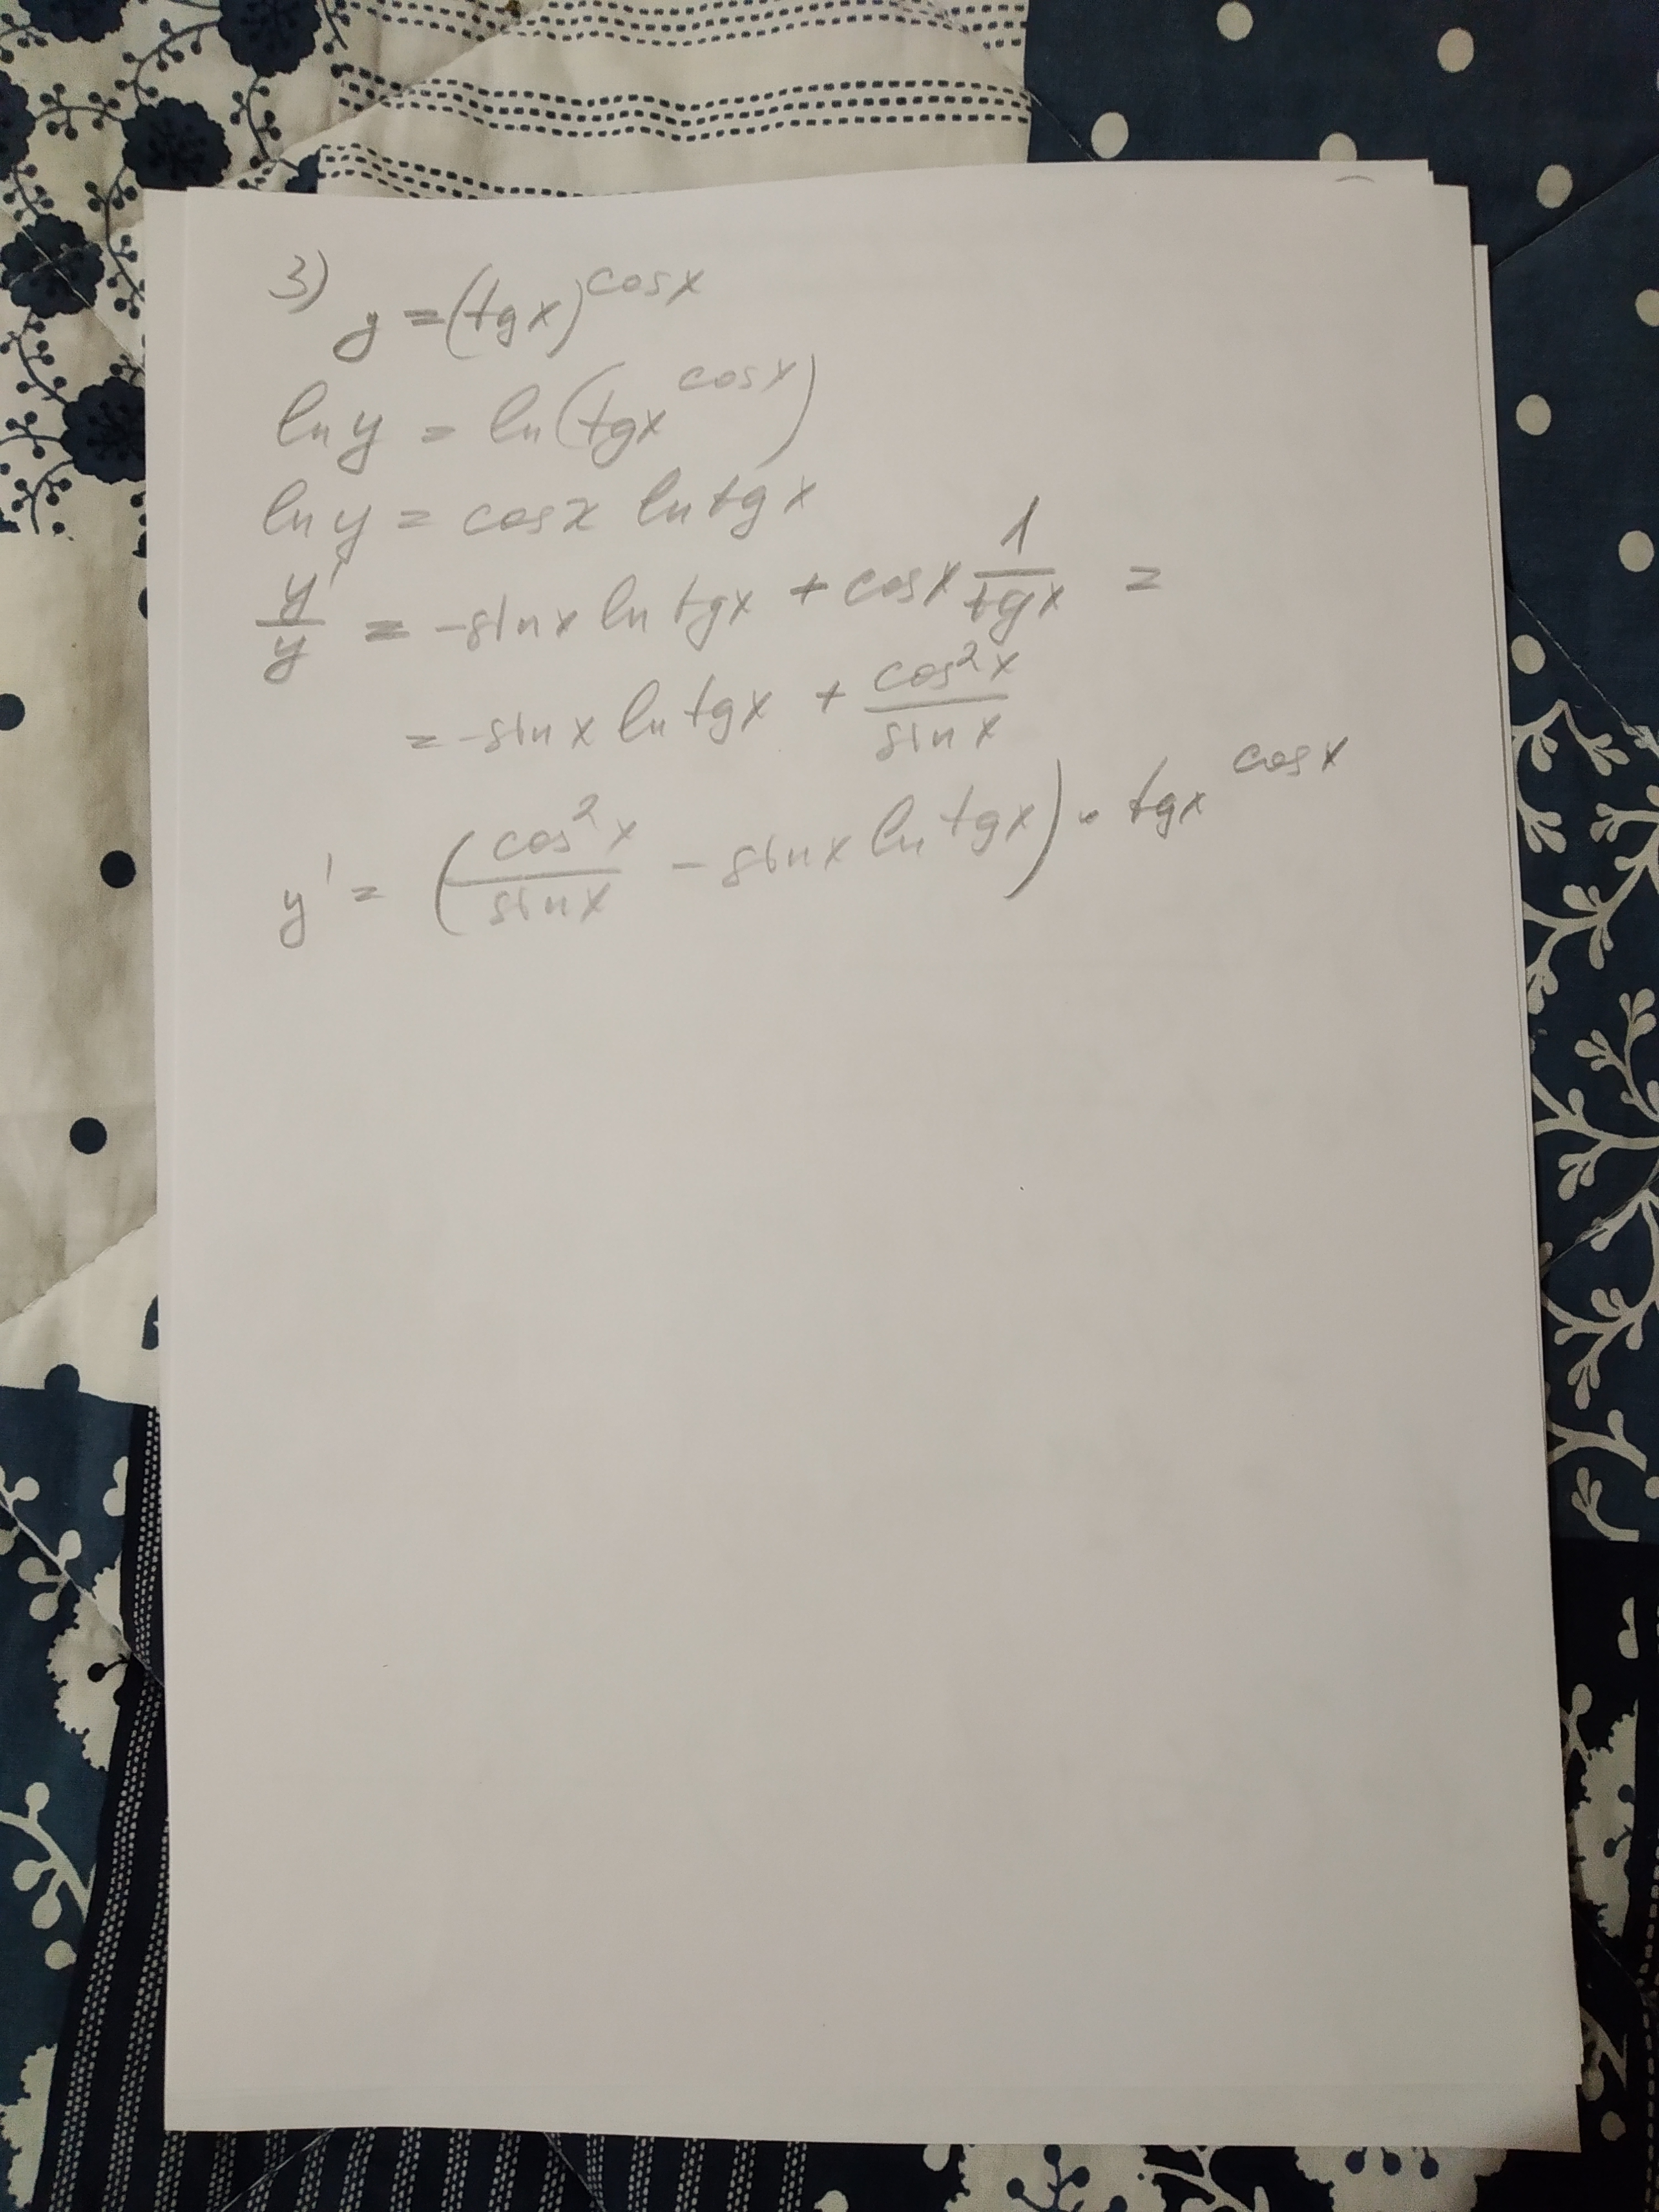 3) y = (tgx)^cosx
ln y = ln(tgx^cosx)
ln y = cosx ln tgx
y'/y = -sinx ln tgx + cosx 1/tgx =
= -sinx ln tgx + cos²x/sinx
y' = (cos²x/sinx - sinx ln tgx) · tgx^cosx